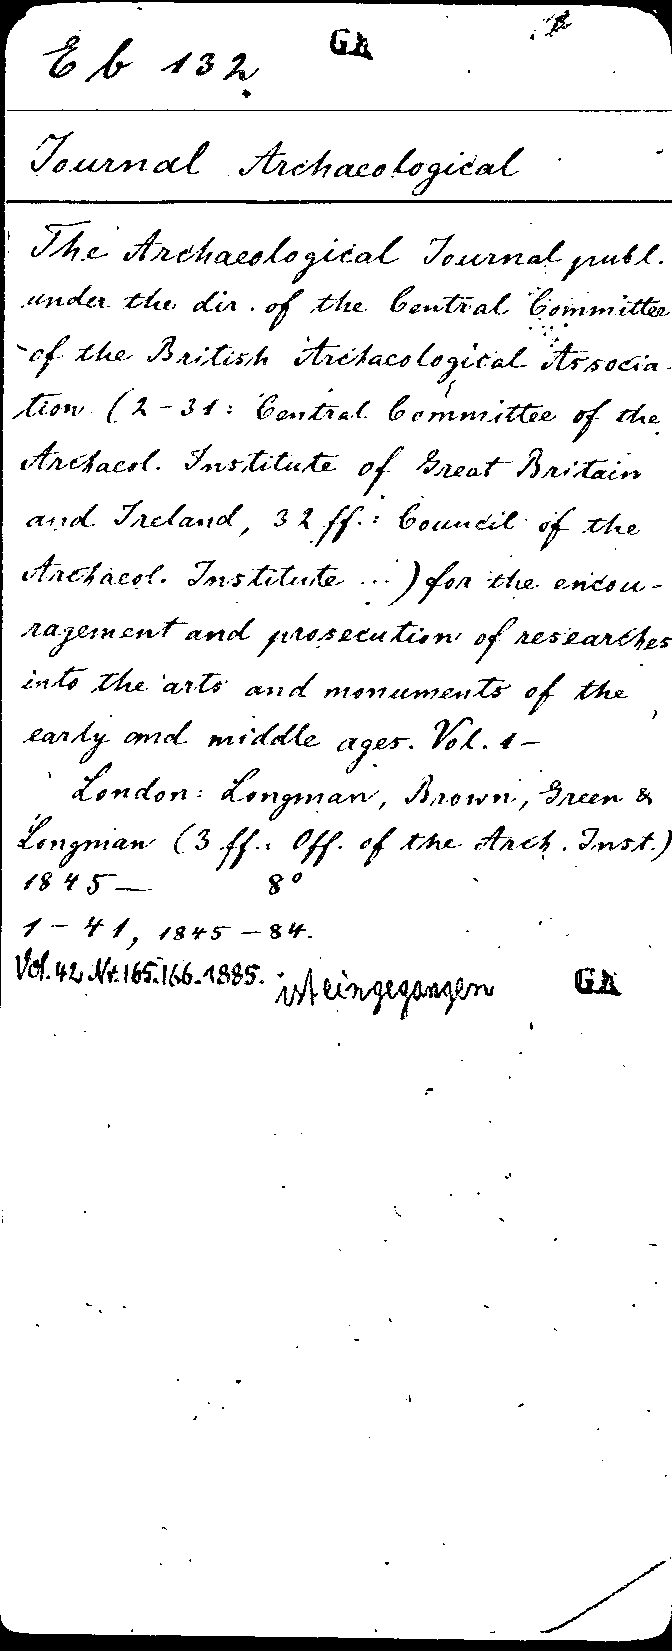 Eb 132 GA
Journal Archaeological
The Archaeological Journal publ.
under the dir. of the Central Committee
of the British Archaeological Associa-
tion (2-31: Central Committee of the
Archaeol. Institute of Great Britain
and Ireland, 32 ff.: Council of the
Archaeol. Institute ...) for the encou-
ragement and prosecution of researches
into the arts and monuments of the
early and middle ages. Vol. 1-
London: Longman, Brown, Green &
Longman (3 ff.: Off. of the Arch. Inst.)
1845— 8°
1-41, 1845-84.
Vol. 42 Nr. 165.166.1885. ist eingegangen GA